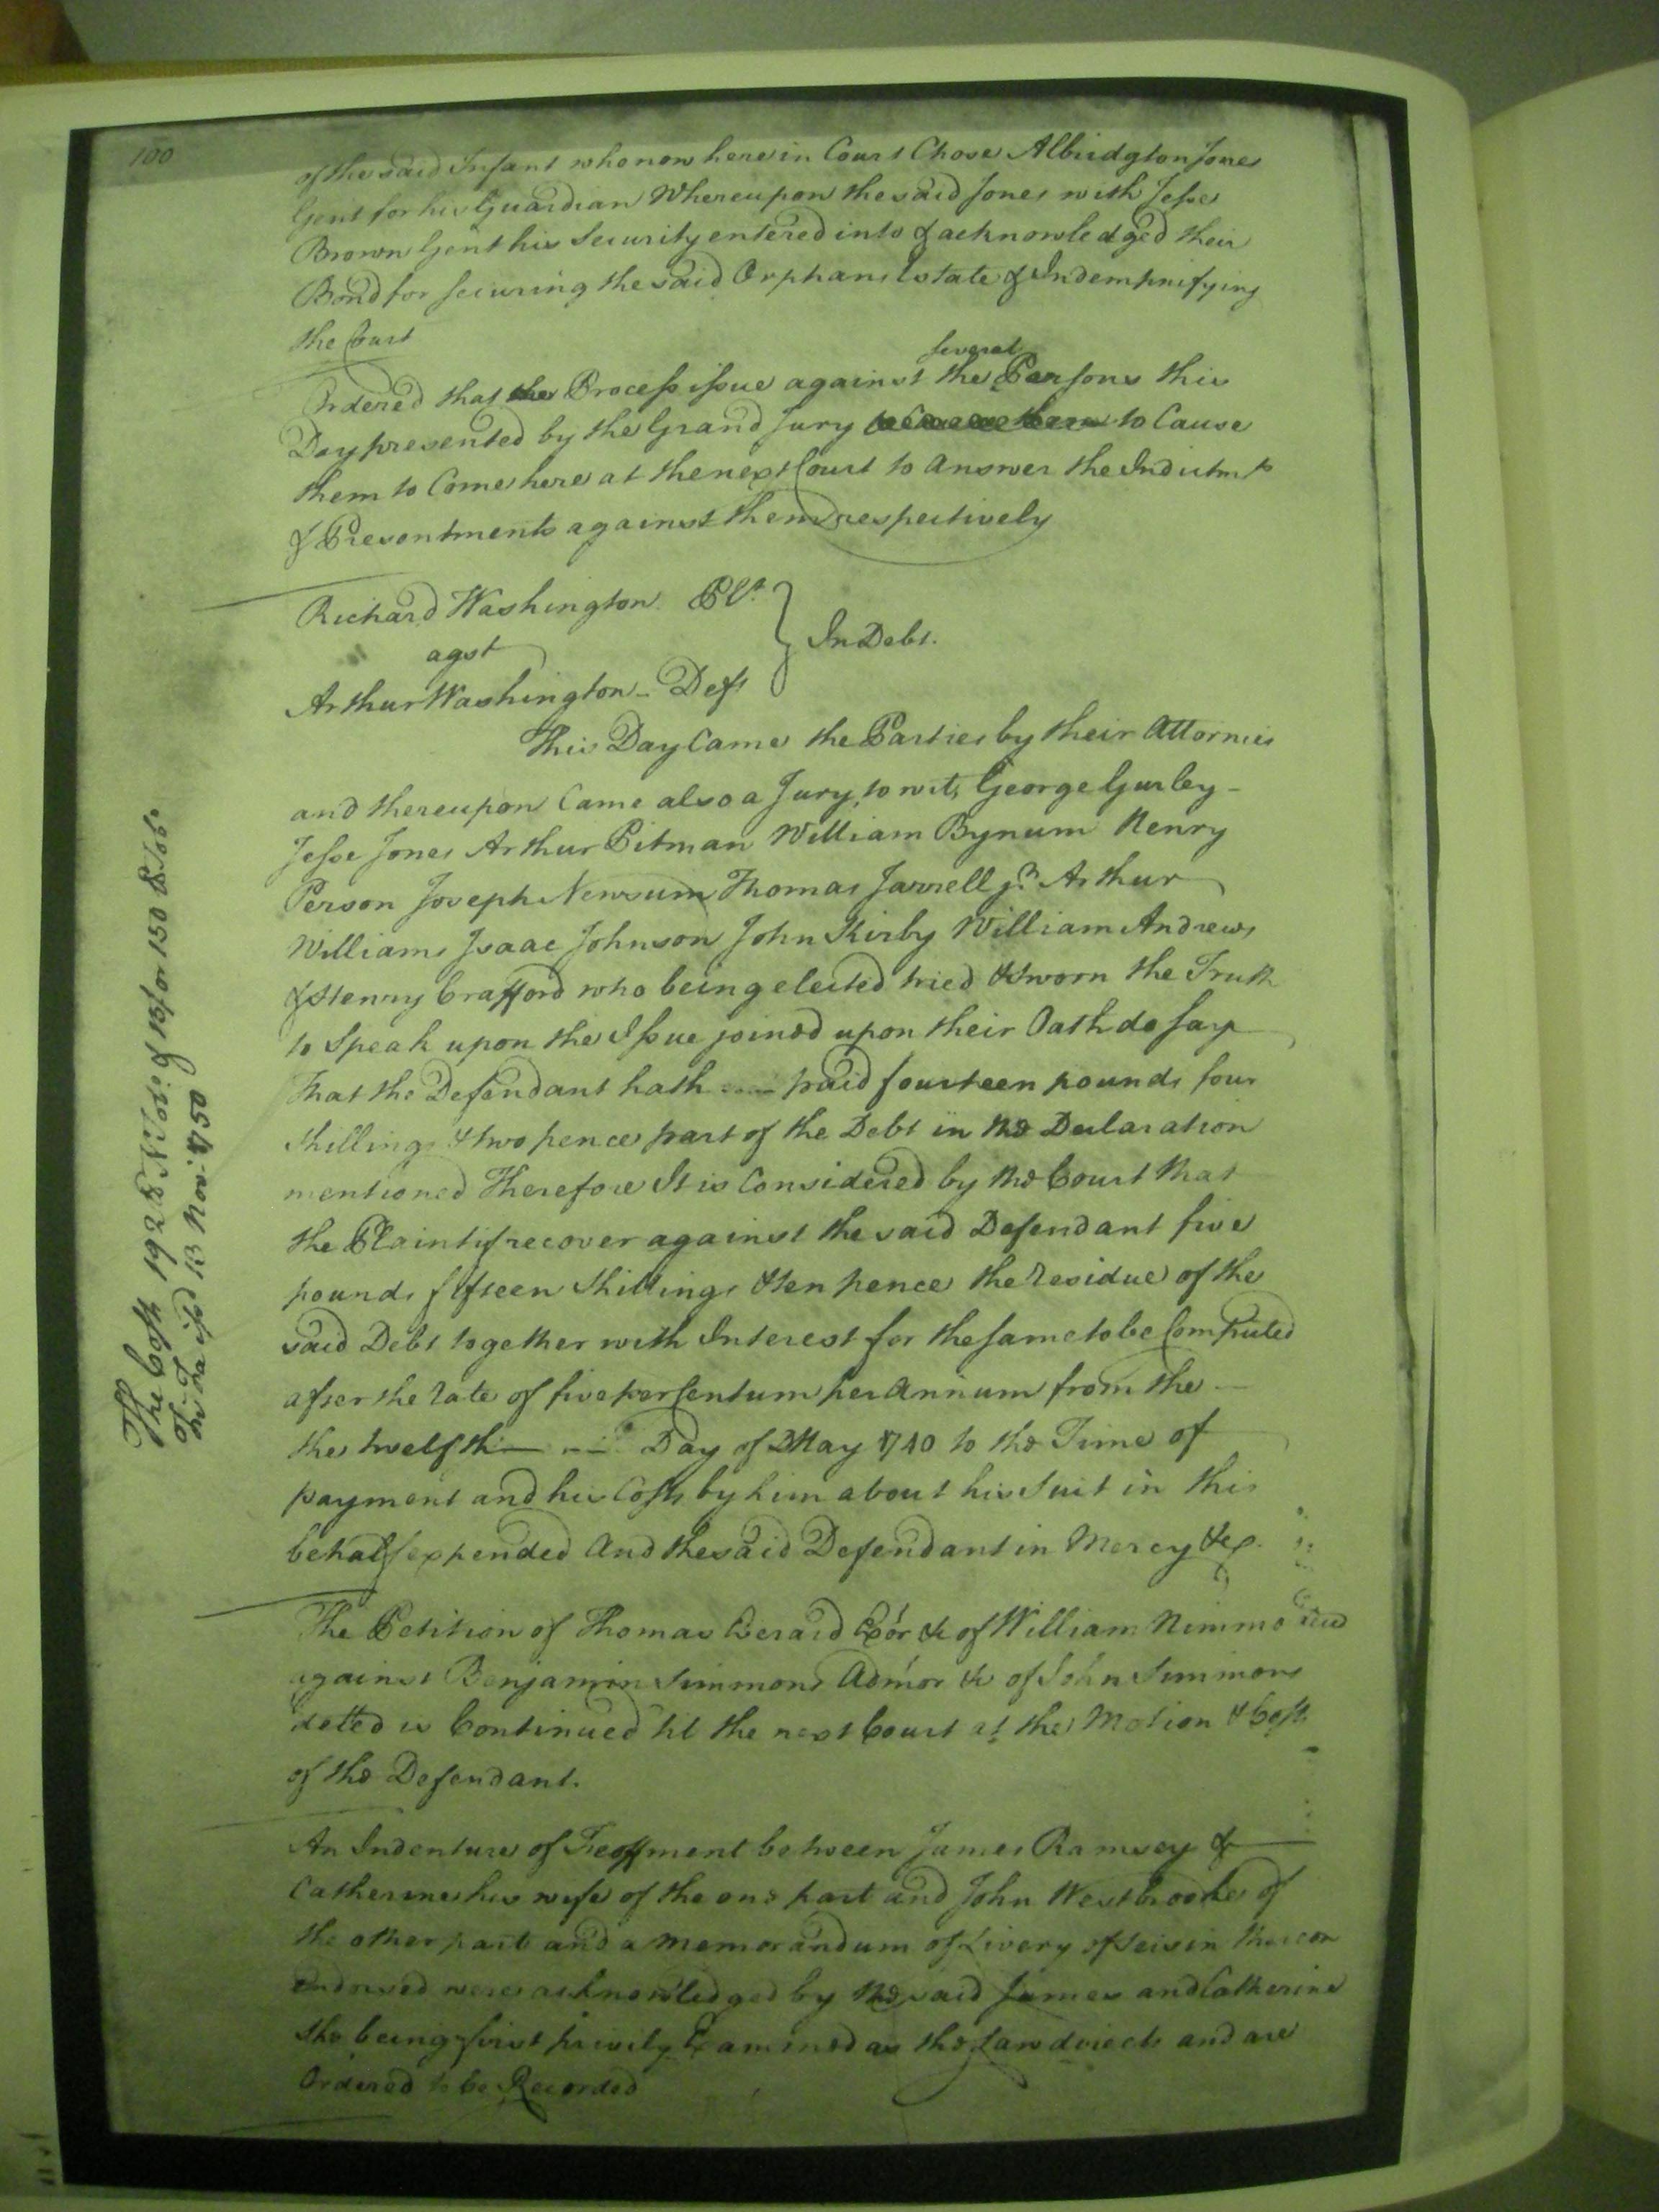 100
of the said Infant who now here in Court Chose Albridgton Jones
Gent for his Guardian Whereupon the said Jones with Jesse
Brown Gent his Security entered into & acknowledged their
Bond for securing the said Orphans Estate & Indempnifying
the Court
several
Ordered that the Process issue against the Persons this
Day presented by the Grand Jury to Cause
them to Come here at the next Court to answer the Indictmts
& Presentments against them respectively
Richard Washington Plt
agst
In Debt.
Arthur Washington - Deft
This Day Came the Parties by their Attornies
and thereupon Came also a Jury, to wit, George Gurley -
Jesse Jones Arthur Pitman William Bynum Henry
Person Joseph Newsum Thomas Jarrell jr Arthur
Williams Isaac Johnson John Kirby William Andrews
& Henry Crafford who being elected tried & sworn the Truth
to Speak upon the Issue joined upon their Oath do say
That the Defendant hath paid fourteen pounds four
Shillings & two pence part of the Debt in the Declaration
mentioned Therefore It is Considered by the Court that
the Plaintif recover against the said Defendant five
pounds fifteen Shillings & ten pence the Residue of the
said Debt together with Interest for the same to be Computed
after the rate of five per Centum per Annum from the -
the twelfth Day of May 1740 to the Time of
payment and his Costs by him about his Suit in this
behalf expended And the said Defendant in Mercy &c.
The Costs 192 lb Nt Tobo & 15/ or 150 lb Tobo
13 Nov: 1750
The Petition of Thomas Everard Exor &c of William Nimmo decd
against Benjamin Simmons Admor &c of John Simmons
deced is Continued til the next Court at the Motion & Costs
of the Defendant.
An Indenture of Feoffment between James Ramsey &
Catherine his wife of the one part and John Westbrooke of
the other part and a Memorandum of Livery of Seisin thereon
endorsed were acknowledged by the said James and Catherine
she being first privily Examined as the Law directs and are
Ordered to be Recorded